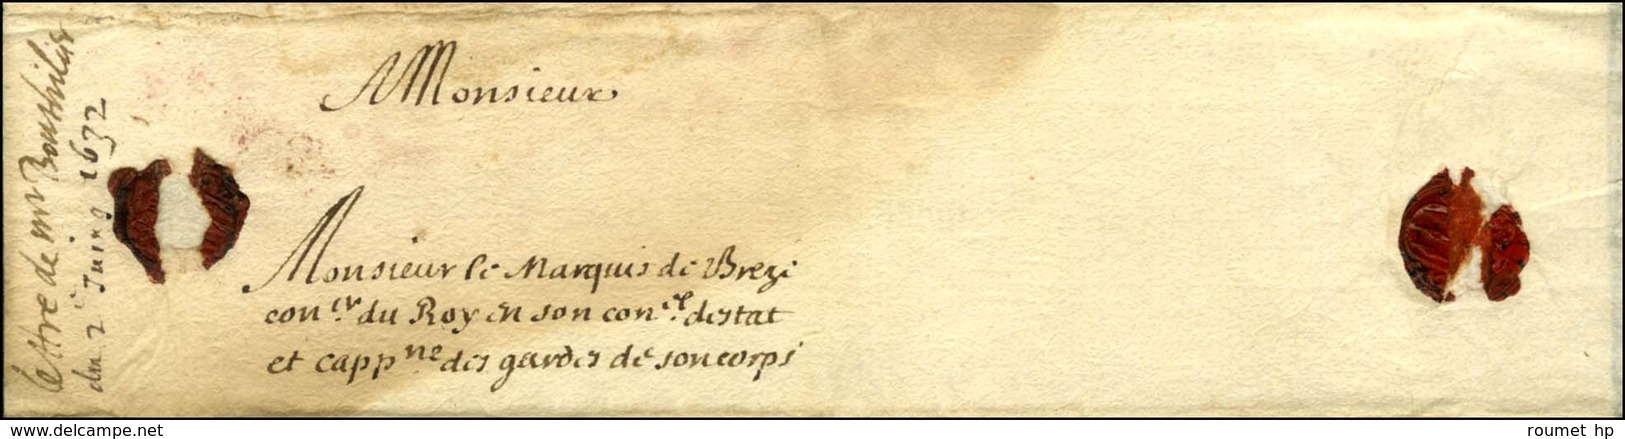 Monsieur
Monsieur le Marquis de Breze
con.er du Roy en son con.el destat
et capp.ne des gardes de son corps
lettre de mr Bouthilier
du 2e Juing 1632
www.delcampe.net
roumet hp